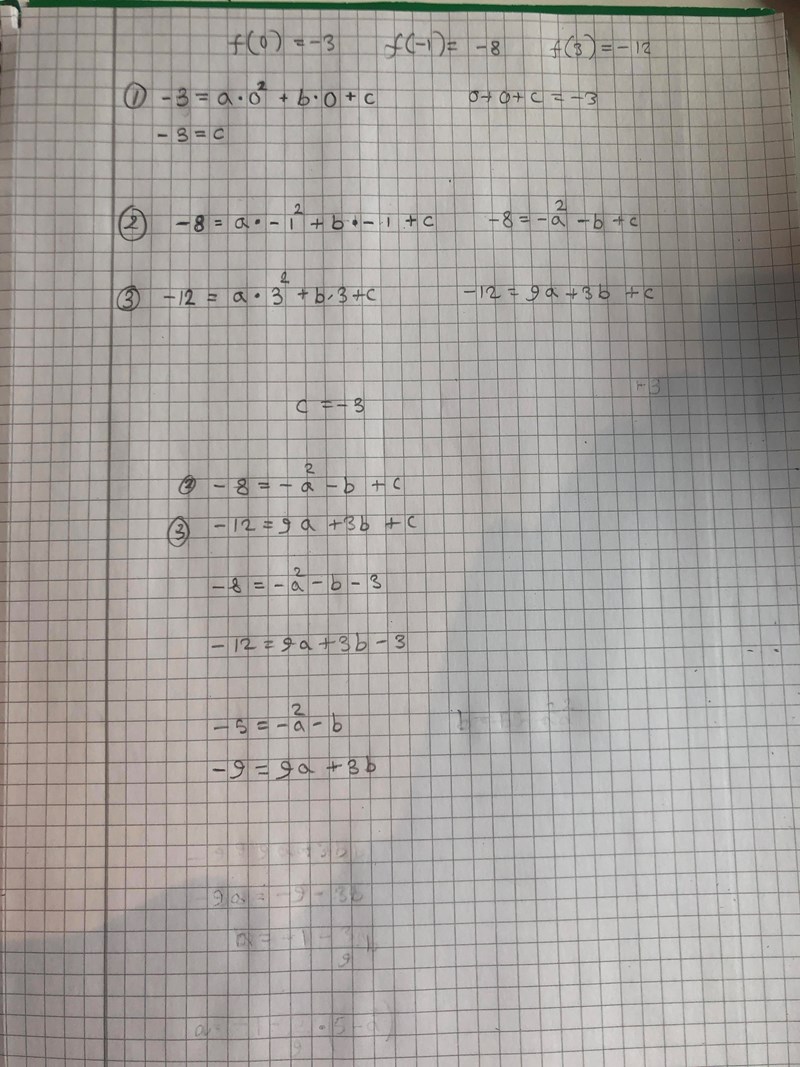 f(0) = -3 f(-1) = -8 f(3) = -12
① -3 = a·0² + b·0 + c 0+0+c = -3
-3 = c
② -8 = a·-1² + b·-1 + c -8 = -a² - b + c
③ -12 = a·3² + b·3 + c -12 = 9a + 3b + c
-3
c = -3
② -8 = -a² - b + c
③ -12 = 9a + 3b + c
-8 = -a² - b - 3
-12 = 9a + 3b - 3
-5 = -a² - b
-9 = 9a + 3b
-9 = 9a + 3b
9a = -9 - 3b